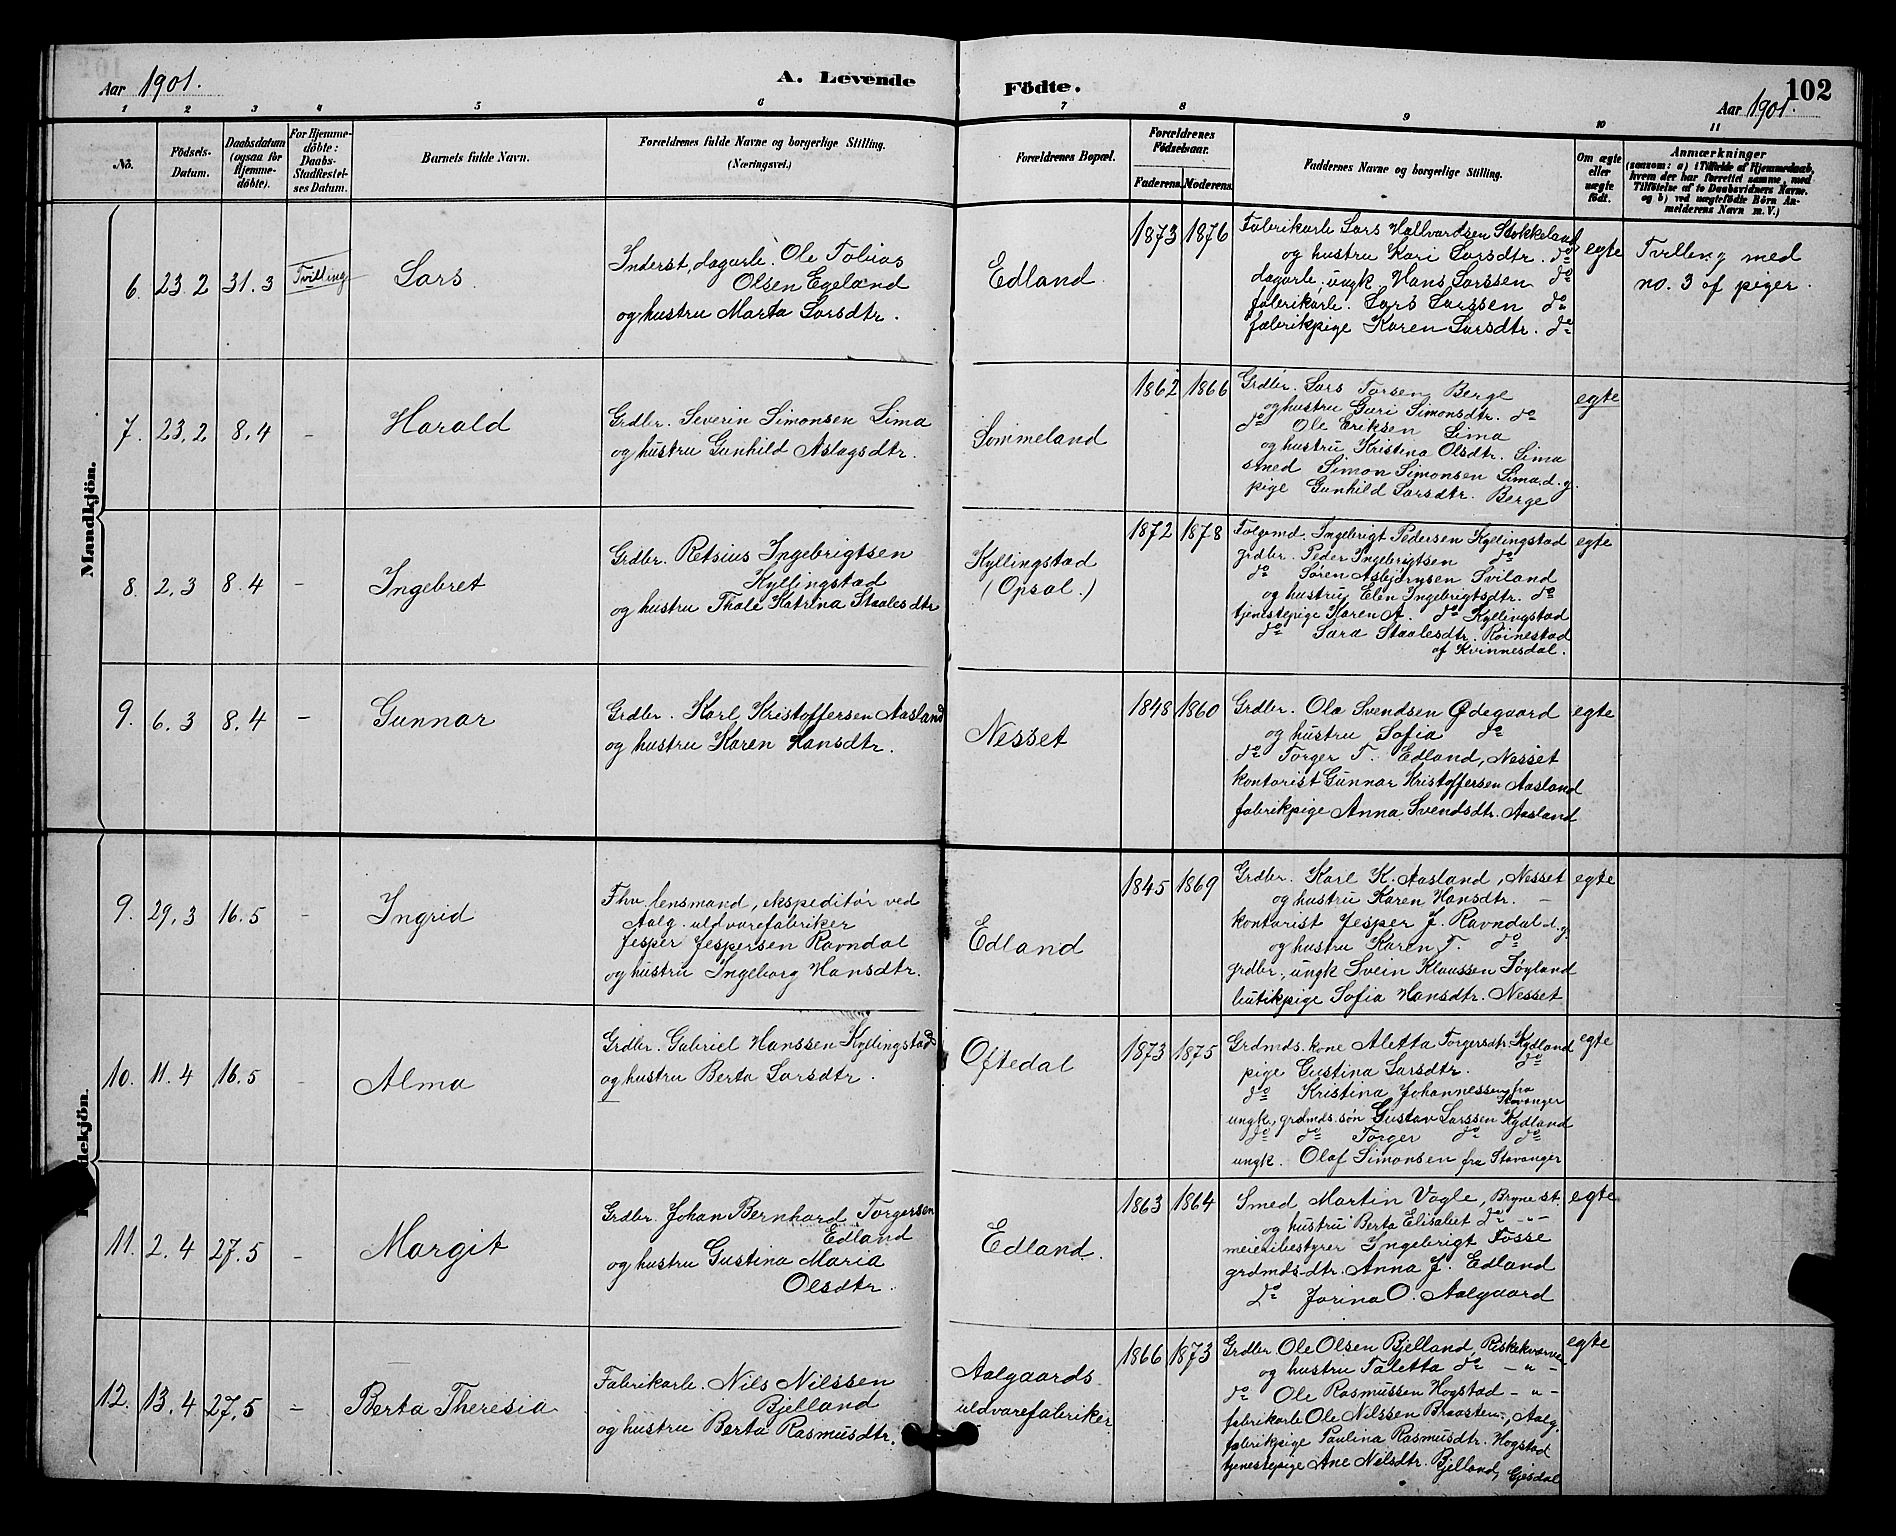 Aar 1901.
A. Levende
Födte.
102
Aar 1901.
1 2 3 4 5 6 7 8 9 10 11
No.
Födsels-
Datum.
Daabsdatum
(ogsaa for
Hjemme-
döbte).
For Hjemme-
döbte:
Daabs-
Stadfæstel-
ses Datum.
Barnets fulde Navn.
Forældrenes fulde Navne og borgerlige Stilling.
(Næringsvei.)
Forældrenes Bopæl.
Forældrenes
Födselsaar.
Faderens.
Moderens.
Faddernes Navne og borgerlige Stilling.
Om ægte
eller
uægte
födt.
Anmærkninger
(saasom: a) i Tilfælde af Hjemmedaab,
hvem der har forrettet samme, med
Tilföielse af to Daabsvidners Navne.
og b) ved uægtefödte Börn An-
melderens Navn m. V.)
Mandkjön.
6. 23.2 31.3 Tvilling Lars
Inderst, dagarb. Ole Tobias
Olsen Egeland
og hustru Marta Larsdtr.
Edland
1873 1876
Fabrikarb. Lars Hallvardsen Stokkeland
og hustru Kari Larsdtr. do
dagarb. ungk. Hans Larssen do
fabrikarb. Lars Larssen do
fabrikpige Karen Larsdtr. do
egte
Tvilling med
no. 3 af piger.
7. 23.2 8.4 – Harald
Grdbr. Severin Simonsen Lima
og hustru Gunhild Aslagsdtr.
Sommeland
1862 1866
Grdbr. Lars Torsen Berge
og hustru Guri Simonsdtr. do
do Ole Eriksen Lima
og hustru Kristina Olsdtr. Lima
smed Simon Simonsen Lima d. y.
pige Gunhild Larsdtr. Berge
egte
8. 2.3 8.4 – Ingebret
Grdbr. Retsius Ingebrigtsen
Kyllingstad
og hustru Thale Katrina Staalesdtr
Kyllingstad
(Opsal.)
1872 1878
Folgemd. Ingebrigt Pedersen Kyllingstad
grdbr. Peder Ingebrigtsen do
do Søren Asbjørnsen Sviland
og hustru Elen Ingebrigtsdtr. do
tjenestepige Karen A. do Kyllingstad
do Sara Staalesdtr. Røinestad
af Kvinnesdal.
egte
9. 6.3 8.4 – Gunnar
Grdbr. Karl Kristoffersen Aasland
og hustru Karen Hansdtr.
Nesset
1848 1860
Grdbr. Ola Svendsen Ødegaard
og hustru Sofia do
do Torger T. Edland, Nesset
kontorist Gunnar Kristoffersen Aasland
fabrikpige Anna Svendsdtr. Aasland
egte
9. 29.3 16.5 – Ingrid
Fhv. lensmand, ekspeditør ved
Aalg. uldvarefabriker
Jesper Jespersen Ravndal
og hustru Ingeborg Hansdtr.
Edland
1845 1869
Grdbr. Karl K. Aasland, Nesset
og hustru Karen Hansdtr. –
kontorist Jesper J. Ravndal d.y.
og hustru Karen T. do
grdbr., ungk Svein Klaussen Tøgland
butikpige Sofia Hansdtr. Nesset
egte
10. 11.4 16.5 – Alma
Grdbr. Gabriel Hanssen Kyllingstad
og hustru Berta Larsdtr.
Oftedal
1873 1875
Grdmds. kone Aletta Torgersdtr. Kydland
pige Gustina Larsdtr. do
do Kristina Johannessen fra
Stavanger
ungk., grdmds. søn Gustav Larssen Kydland
do do Torger do do
ungk. Olaf Simonsen fra Stavanger
egte
11. 2.4 27.5 – Margit
Grdbr. Johan Bernhard Torgersen
Edland
og hustru Gustina Maria
Olsdtr.
Edland.
1863 1864
Smed Martin Vagle, Bryne st.
og hustru Berta Elisabet do – " –
meieribestyrer Ingebrigt Fosse
grdmds-dtr. Anna J. Edland
do Jorina O. Aalgaard
egte
12. 13.4 27.5 – Berta Theresia
Fabrikarb. Nils Nilssen
Bjelland
og hustru Berta Rasmusdtr.
Aalgaards
uldvarefabriker
1866 1873
Grdbr. Ole Olsen Bjelland,
og hustru Taletta do – " –
do Ole Rasmussen Hogstad – " –
fabrikarb Ole Nilssen Braasten, Aalg.
fabrikpige Paulina Rasmusdtr. Hogstad
tjenestepige Ane Nilsdtr. Bjelland, Gjesdal
egte